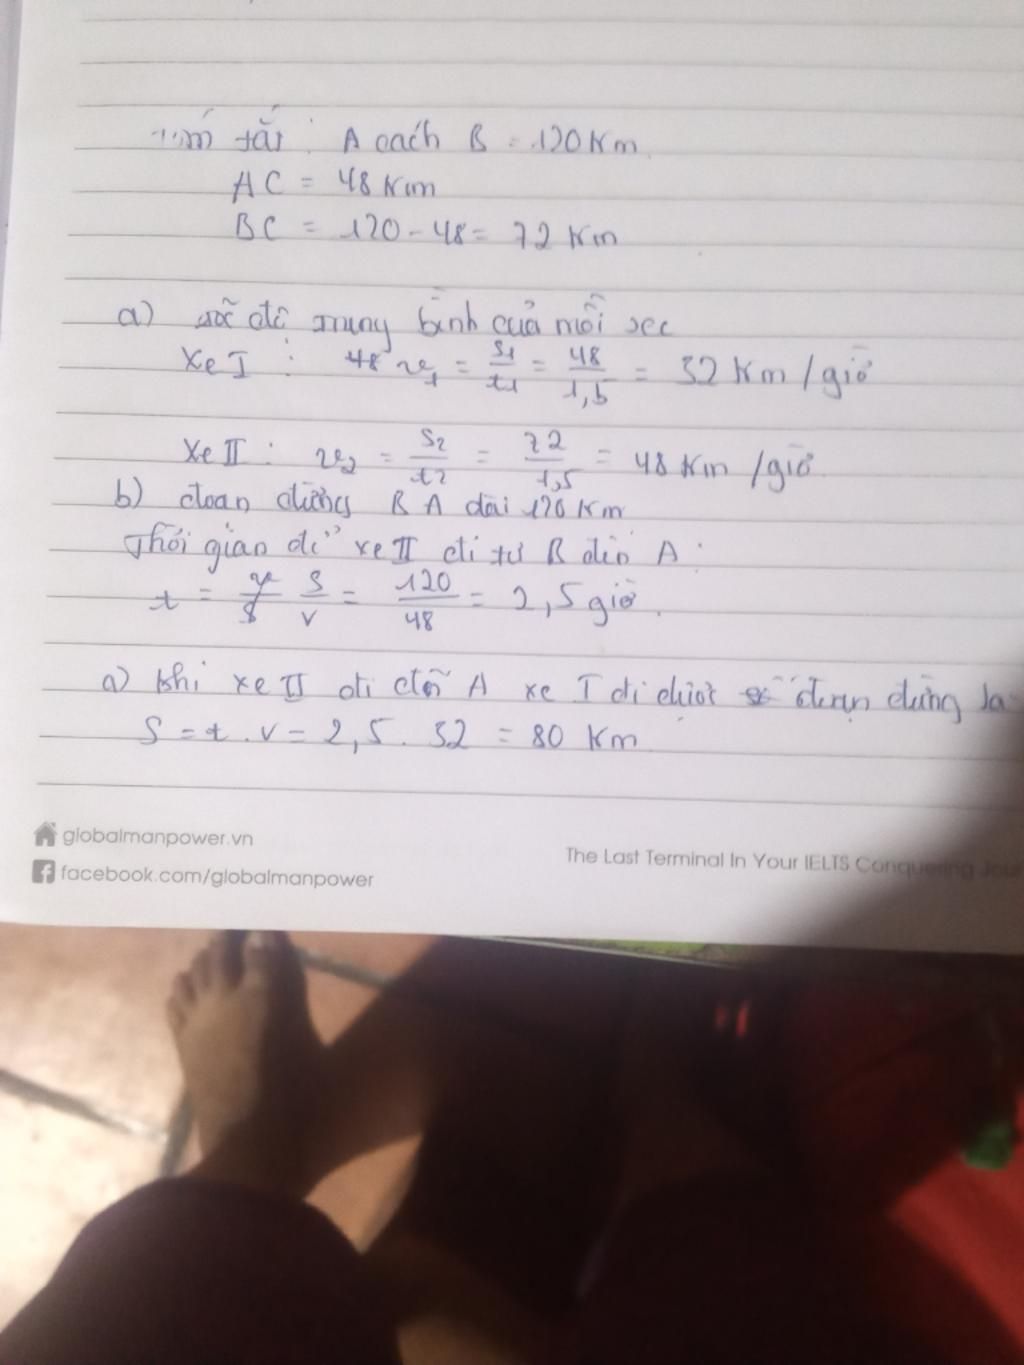 tắt : A cách B = 120 Km
AC = 48 Km
BC = 120 - 48 = 72 Km
a) độ trung bình của mỗi xe
Xe I : v1 = S1/t1 = 48/1,5 = 32 Km/giờ
Xe II : v2 = S2/t2 = 72/1,5 = 48 Km/giờ
b) đoạn đường B A dài 120 Km
Thời gian để xe II đi từ B đến A :
t = S/v = 120/48 = 2,5 giờ.
a) khi xe II đi đến A xe I đi được đoạn đường là
S = t . v = 2,5 . 32 = 80 Km
globalmanpower.vn
facebook.com/globalmanpower
The Last Terminal In Your IELTS Conquering